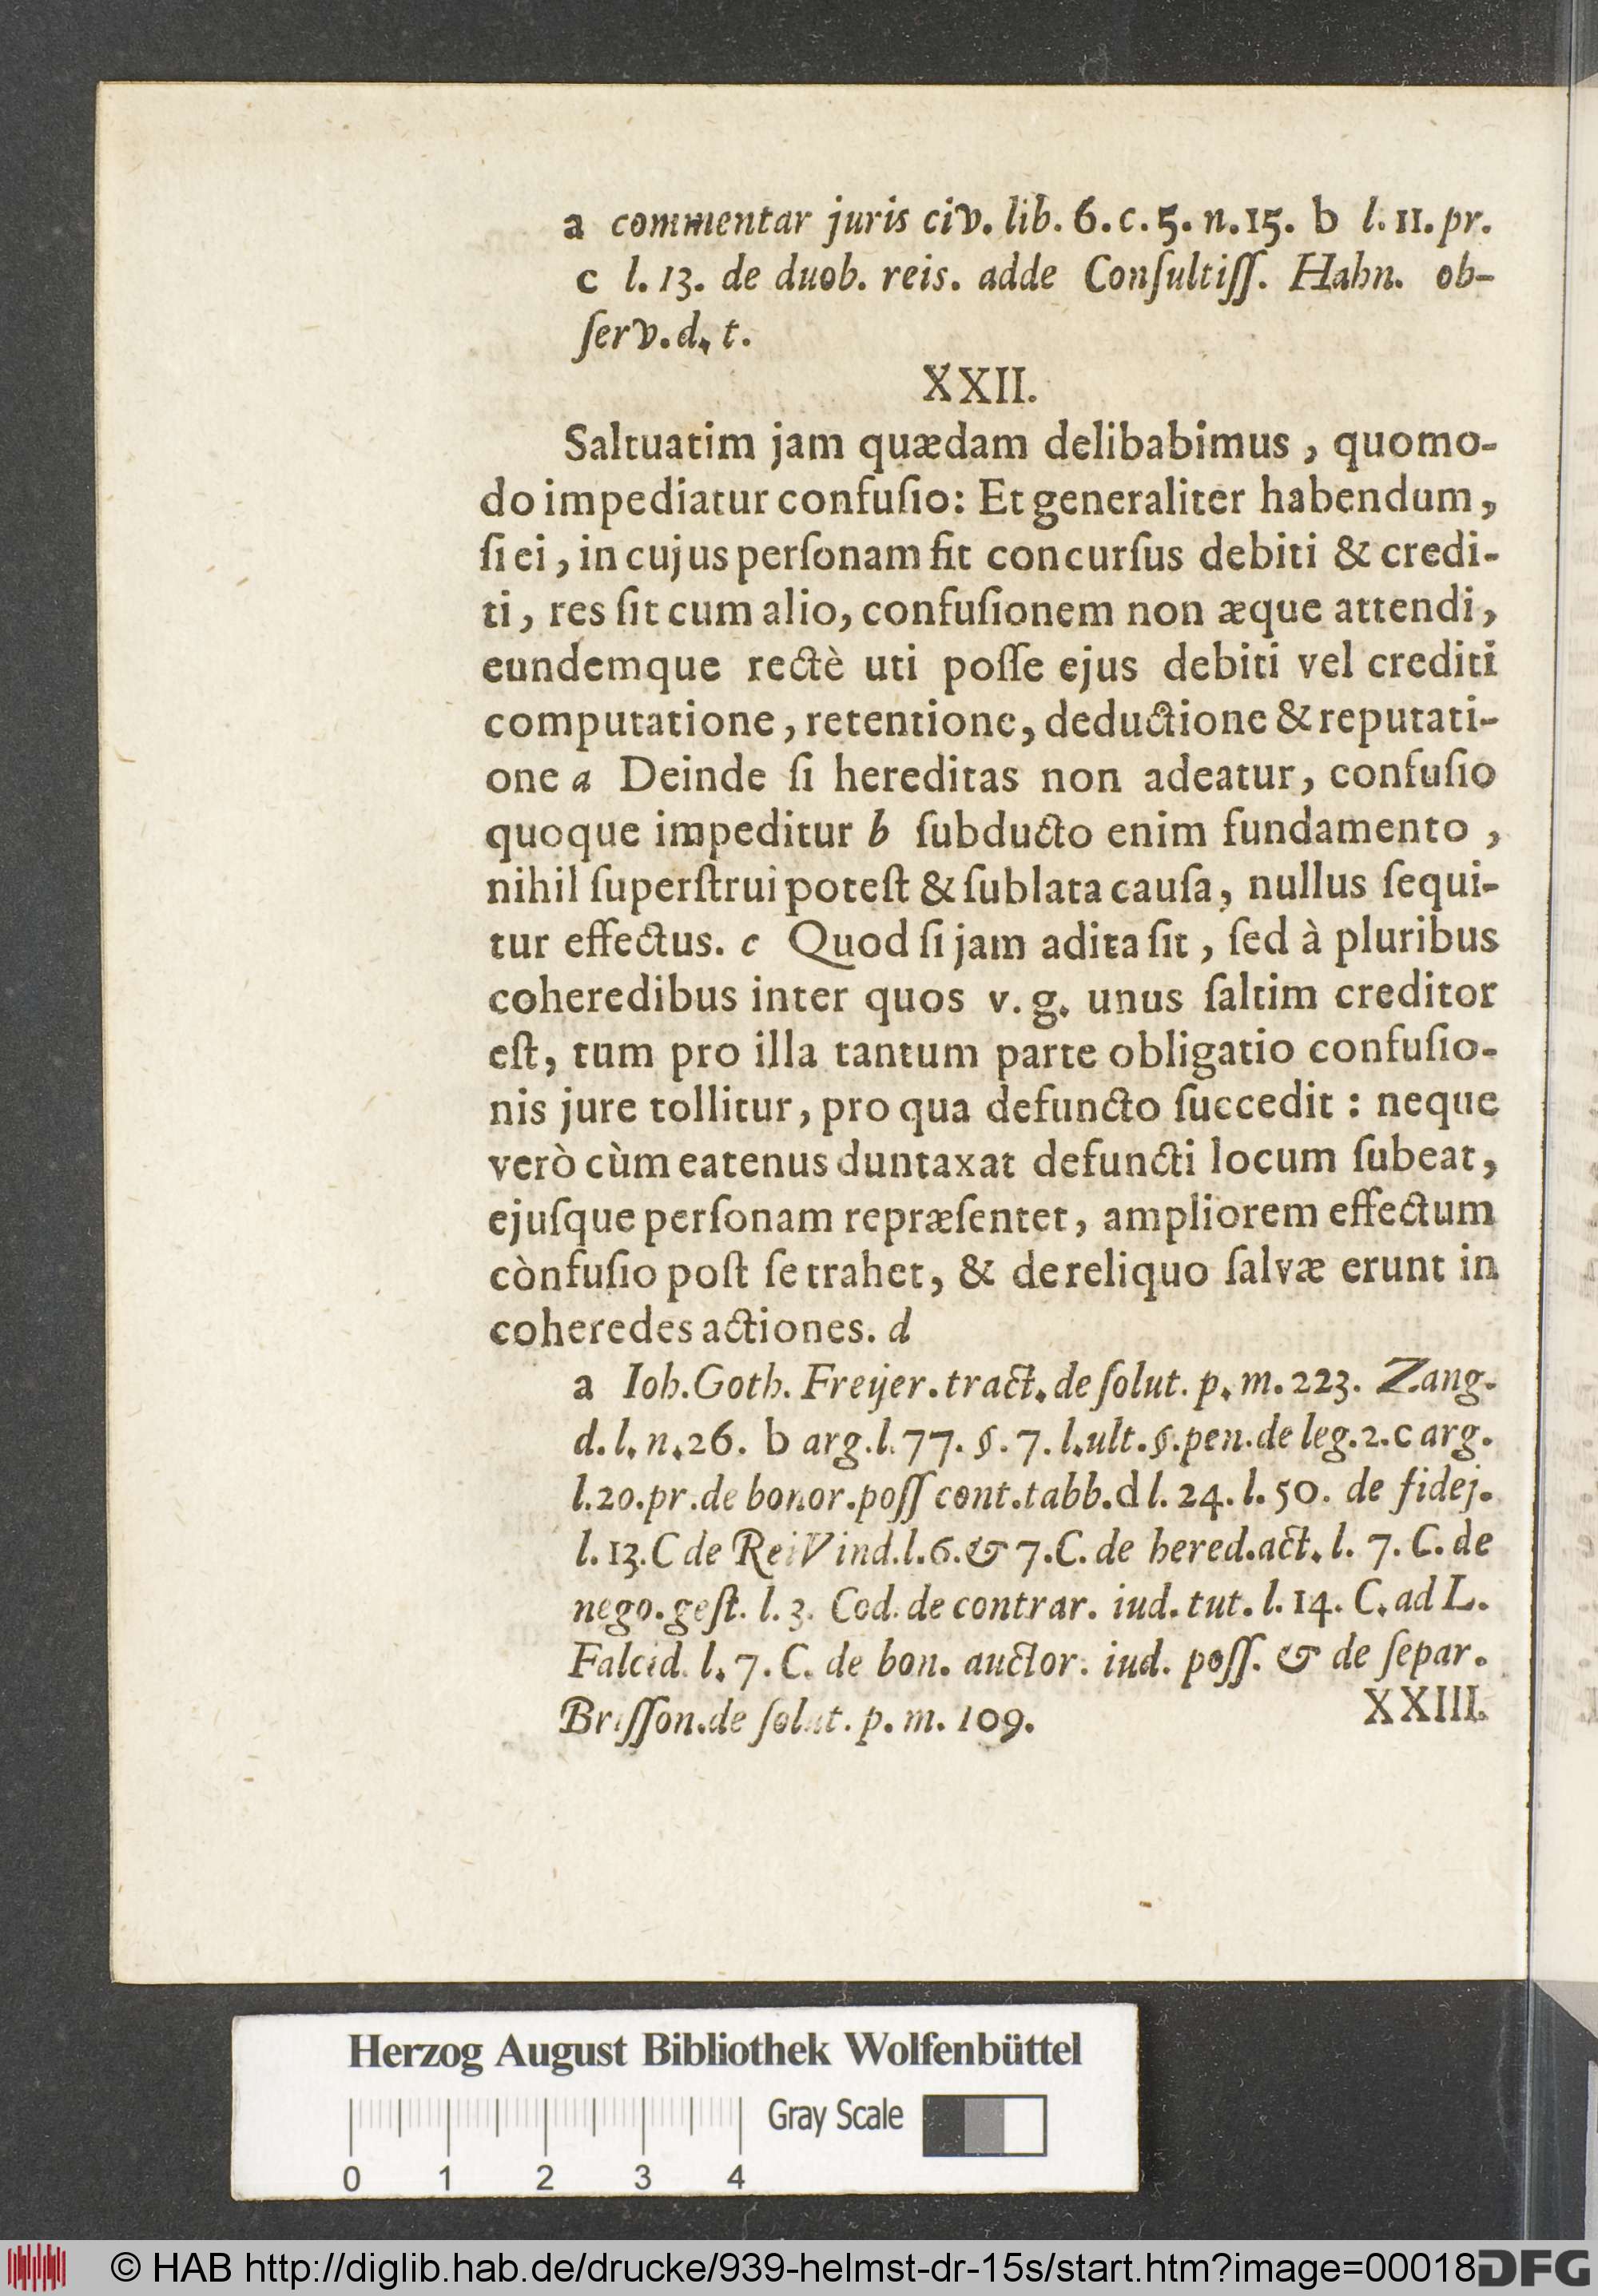 a commentar juris civ. lib. 6. c. 5. n. 15. b l. 11. pr.
c l. 13. de duob. reis. adde Conſultiſſ. Hahn. ob-
ſerv. d. t.
XXII.
Saltuatim jam quædam delibabimus, quomo-
do impediatur confuſio: Et generaliter habendum,
ſi ei, in cujus perſonam fit concurſus debiti & credi-
ti, res ſit cum alio, confuſionem non æque attendi,
eundemque rectè uti poſſe ejus debiti vel crediti
computatione, retentione, deductione & reputati-
one a Deinde ſi hereditas non adeatur, confuſio
quoque impeditur b ſubducto enim fundamento,
nihil ſuperſtrui poteſt & ſublata cauſa, nullus ſequi-
tur effectus. c Quod ſi jam adita ſit, ſed à pluribus
coheredibus inter quos v. g. unus ſaltim creditor
eſt, tum pro illa tantum parte obligatio confuſio-
nis jure tollitur, pro qua defuncto ſuccedit: neque
verò cùm eatenus duntaxat defuncti locum ſubeat,
ejuſque perſonam repræſentet, ampliorem effectum
cònfuſio poſt ſe trahet, & de reliquo ſalvæ erunt in
coheredes actiones. d
a Ioh. Goth. Freyer. tract. de ſolut. p. m. 223. Zang.
d. l. n. 26. b arg. l. 77. §. 7. l. ult. §. pen. de leg. 2. c arg.
l. 20. pr. de bonor. poſſ cont. tabb. d l. 24. l. 50. de fidej.
l. 13. C de Rei Vind. l. 6. & 7. C. de hered. act. l. 7. C. de
nego. geſt. l. 3. Cod. de contrar. iud. tut. l. 14. C. ad L.
Falcid. l. 7. C. de bon. auctor. iud. poſſ. & de ſepar.
Briſſon. de ſolut. p. m. 109.
XXIII.
Herzog August Bibliothek Wolfenbüttel
Gray Scale
0 1 2 3 4
© HAB http://diglib.hab.de/drucke/939-helmst-dr-15s/start.htm?image=00018
DFG